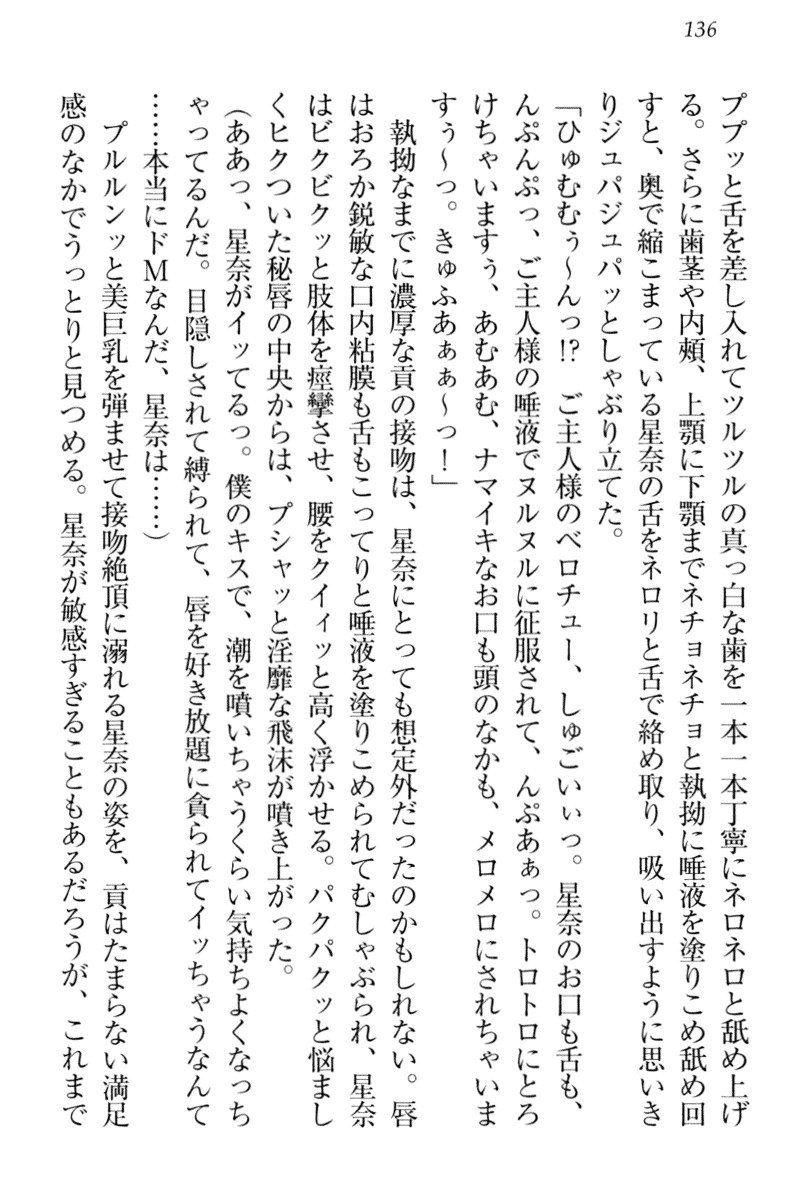 136
ププッと舌を差し入れてツルツルの真っ白な歯を一本一本丁寧にネロネロと舐め上げ
る。さらに歯茎や内頰、上顎に下顎までネチョネチョと執拗に唾液を塗りこめ舐め回
すと、奥で縮こまっている星奈の舌をネロリと舌で絡め取り、吸い出すように思いき
りジュパジュパッとしゃぶり立てた。
「ひゅむむぅ～んっ!?　ご主人様のベロチュー、しゅごいぃっ。星奈のお口も舌も、
んぷんぷっ、ご主人様の唾液でヌルヌルに征服されて、んぷあぁっ。トロトロにとろ
けちゃいますぅ、あむあむ、ナマイキなお口も頭のなかも、メロメロにされちゃいま
すぅ～っ。きゅふあぁぁ～っ！」
　執拗なまでに濃厚な貢の接吻は、星奈にとっても想定外だったのかもしれない。唇
はおろか鋭敏な口内粘膜も舌もこってりと唾液を塗りこめられてむしゃぶられ、星奈
はビクビクッと肢体を痙攣させ、腰をクイィッと高く浮かせる。パクパクッと悩まし
くヒクついた秘唇の中央からは、プシャッと淫靡な飛沫が噴き上がった。
（ああっ、星奈がイッてるっ。僕のキスで、潮を噴いちゃうくらい気持ちよくなっち
ゃってるんだ。目隠しされて縛られて、唇を好き放題に貪られてイッちゃうなんて
……本当にドＭなんだ、星奈は……）
　プルルンッと美巨乳を弾ませて接吻絶頂に溺れる星奈の姿を、貢はたまらない満足
感のなかでうっとりと見つめる。星奈が敏感すぎることもあるだろうが、これまで